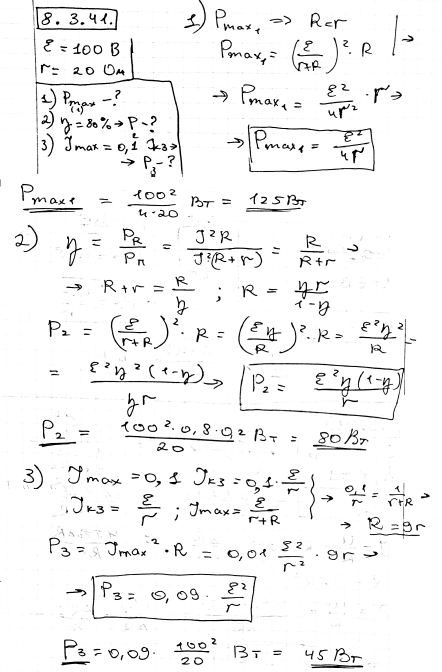 8.3.41.
ℰ = 100 В
r = 20 Ом
1) Pmax(1) - ?
2) η = 80% → P - ?
3) Jmax = 0,1 Jкз →
→ P3 - ?
1) Pmax1 => R=r
Pmax1 = (ℰ/(r+R))² · R →
→ Pmax1 = ℰ²/4r² · r →
→ Pmax1 = ℰ²/4r
Pmax1 = 100²/4·20 Вт = 125Вт
2) η = PR/Pп = J²R/J²(R+r) = R/(R+r) →
→ R+r = R/η ; R = ηr/(1-η)
P2 = (ℰ/(r+R))² · R = (ℰη/R)² · R = ℰ²η²/R =
= ℰ²η²(1-η)/ηr → P2 = ℰ²η(1-η)/r
P2 = 100²·0,8·0,2/20 Вт = 80Вт
3) Jmax = 0,1 Jкз = 0,1·ℰ/r
Jкз = ℰ/r ; Jmax = ℰ/(r+R) } → 0,1/r = 1/(r+R) →
→ R = 9r
P3 = Jmax² · R = 0,01 ℰ²/r² · 9r →
→ P3 = 0,09 · ℰ²/r
P3 = 0,09 · 100²/20 Вт = 45Вт